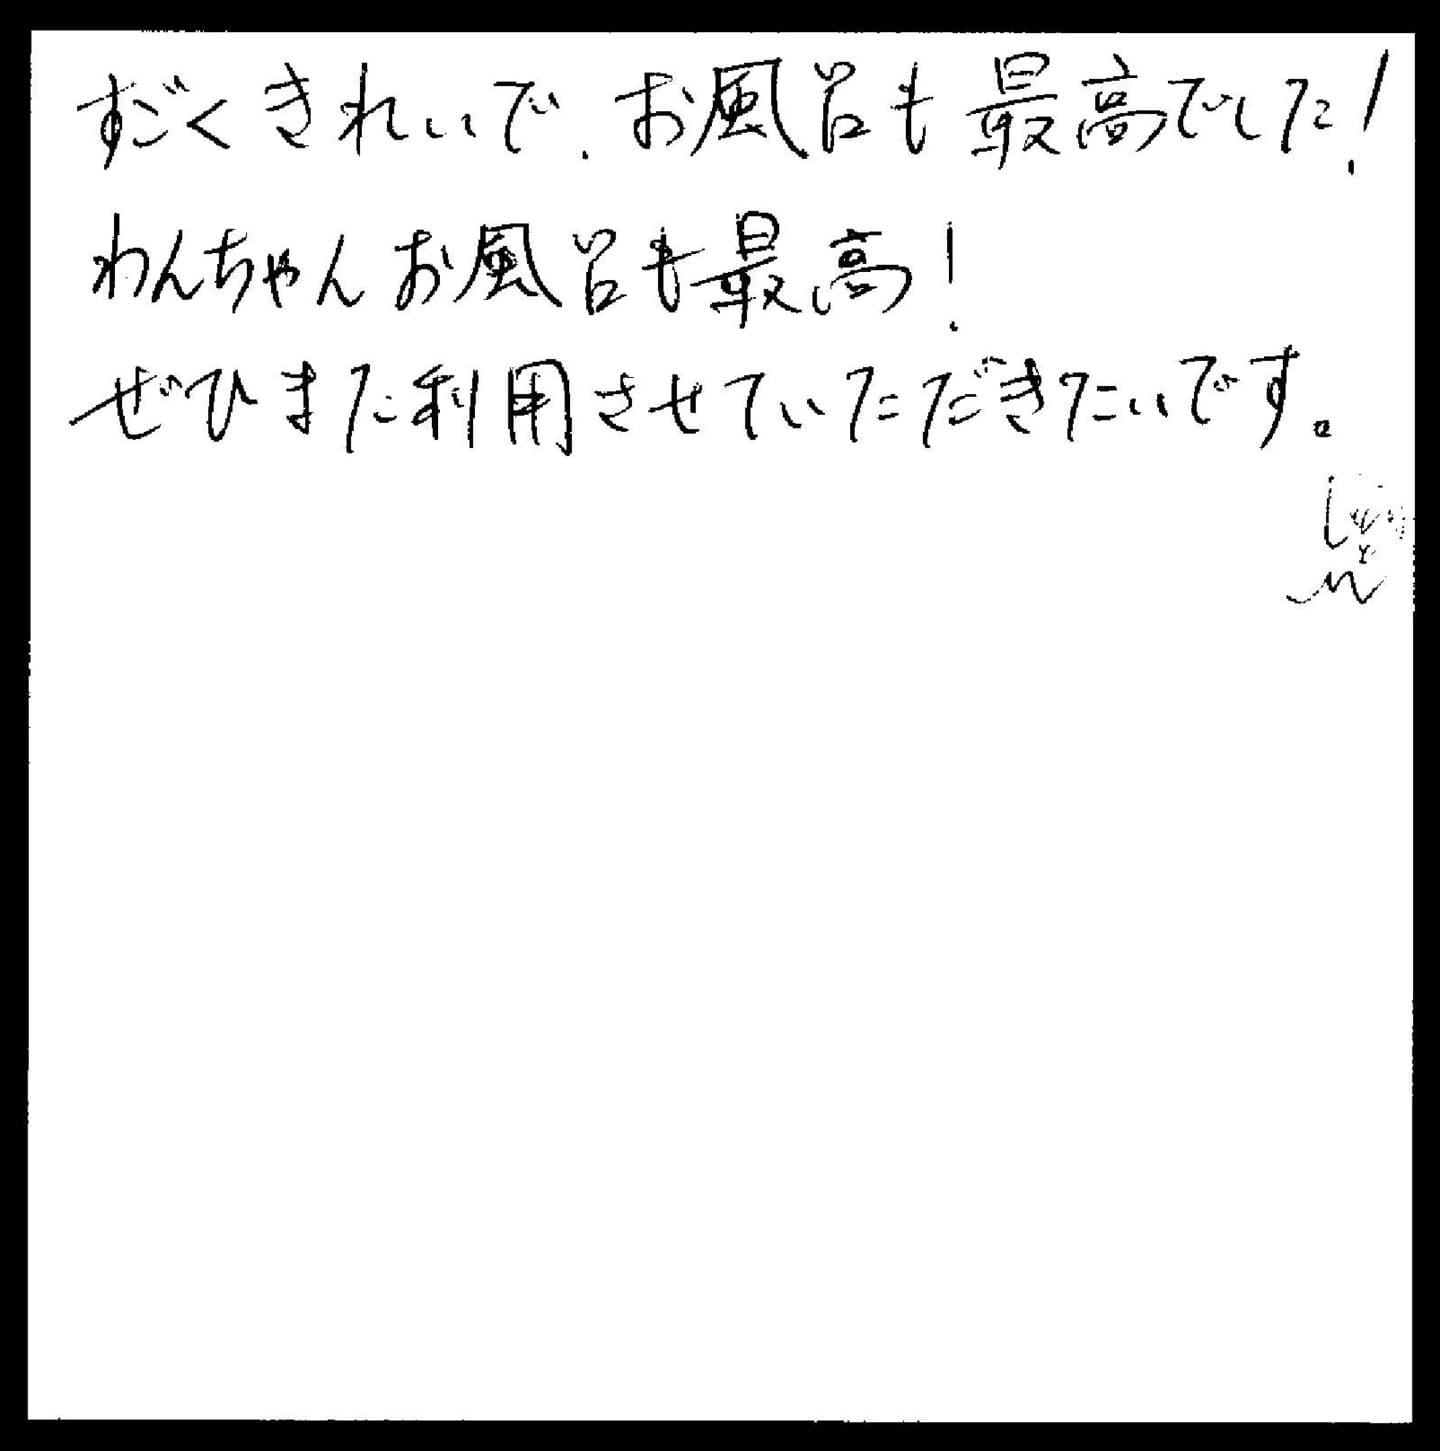 すごくきれいで、お風呂も最高でした!
わんちゃんお風呂も最高!
ぜひまた利用させていただきたいです。